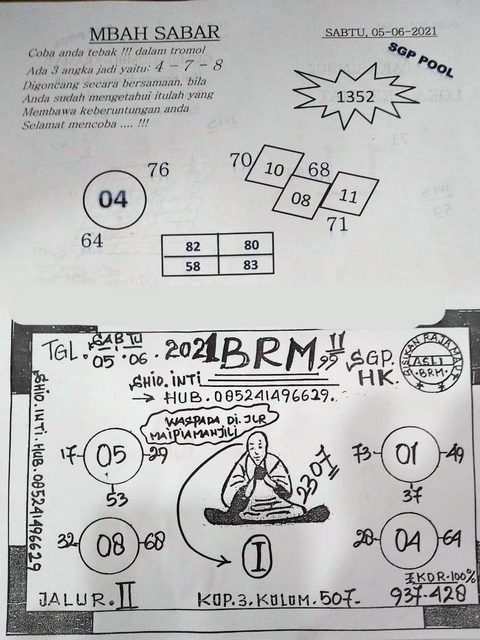 MBAH SABAR
SABTU, 05-06-2021
Coba anda tebak !!! dalam tromol
Ada 3 angka jadi yaitu: 4 – 7 – 8
Digoncang secara bersamaan, bila
Anda sudah mengetahui itulah yang
Membawa keberuntungan anda
Selamat mencoba .... !!!
SGP POOL
1352
76
04
64
70
10
68
08
11
71
82 80
58 83
TGL. SABTU 05.06.2021
BRM
II
99
SGP.
HK.
ASLI
BRM
SHIO.INTI
HUB.085241496629.
SHIO.INTI.HUB.085241496629
WASPADA DI.JLR
17- 05 -29
53
32 08 -68
2307
I
73- 01 -49
37
28- 04 -64
JALUR.II
KOP.3.KOLOM.507-
EKOR.100%
937-428